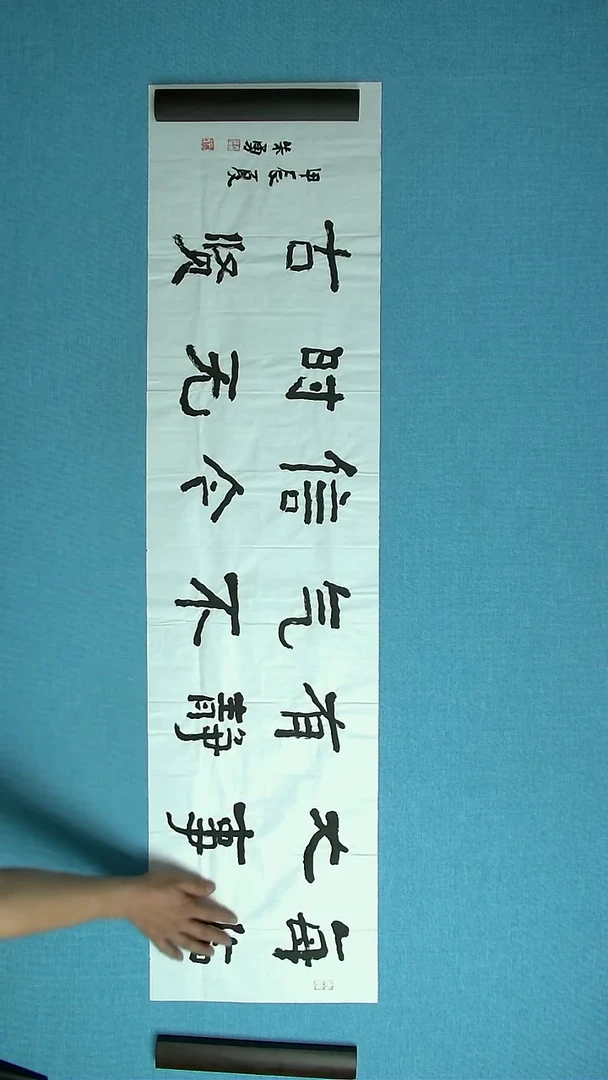 每临
大事
有静
气不
信今
时无
古贤
甲辰夏